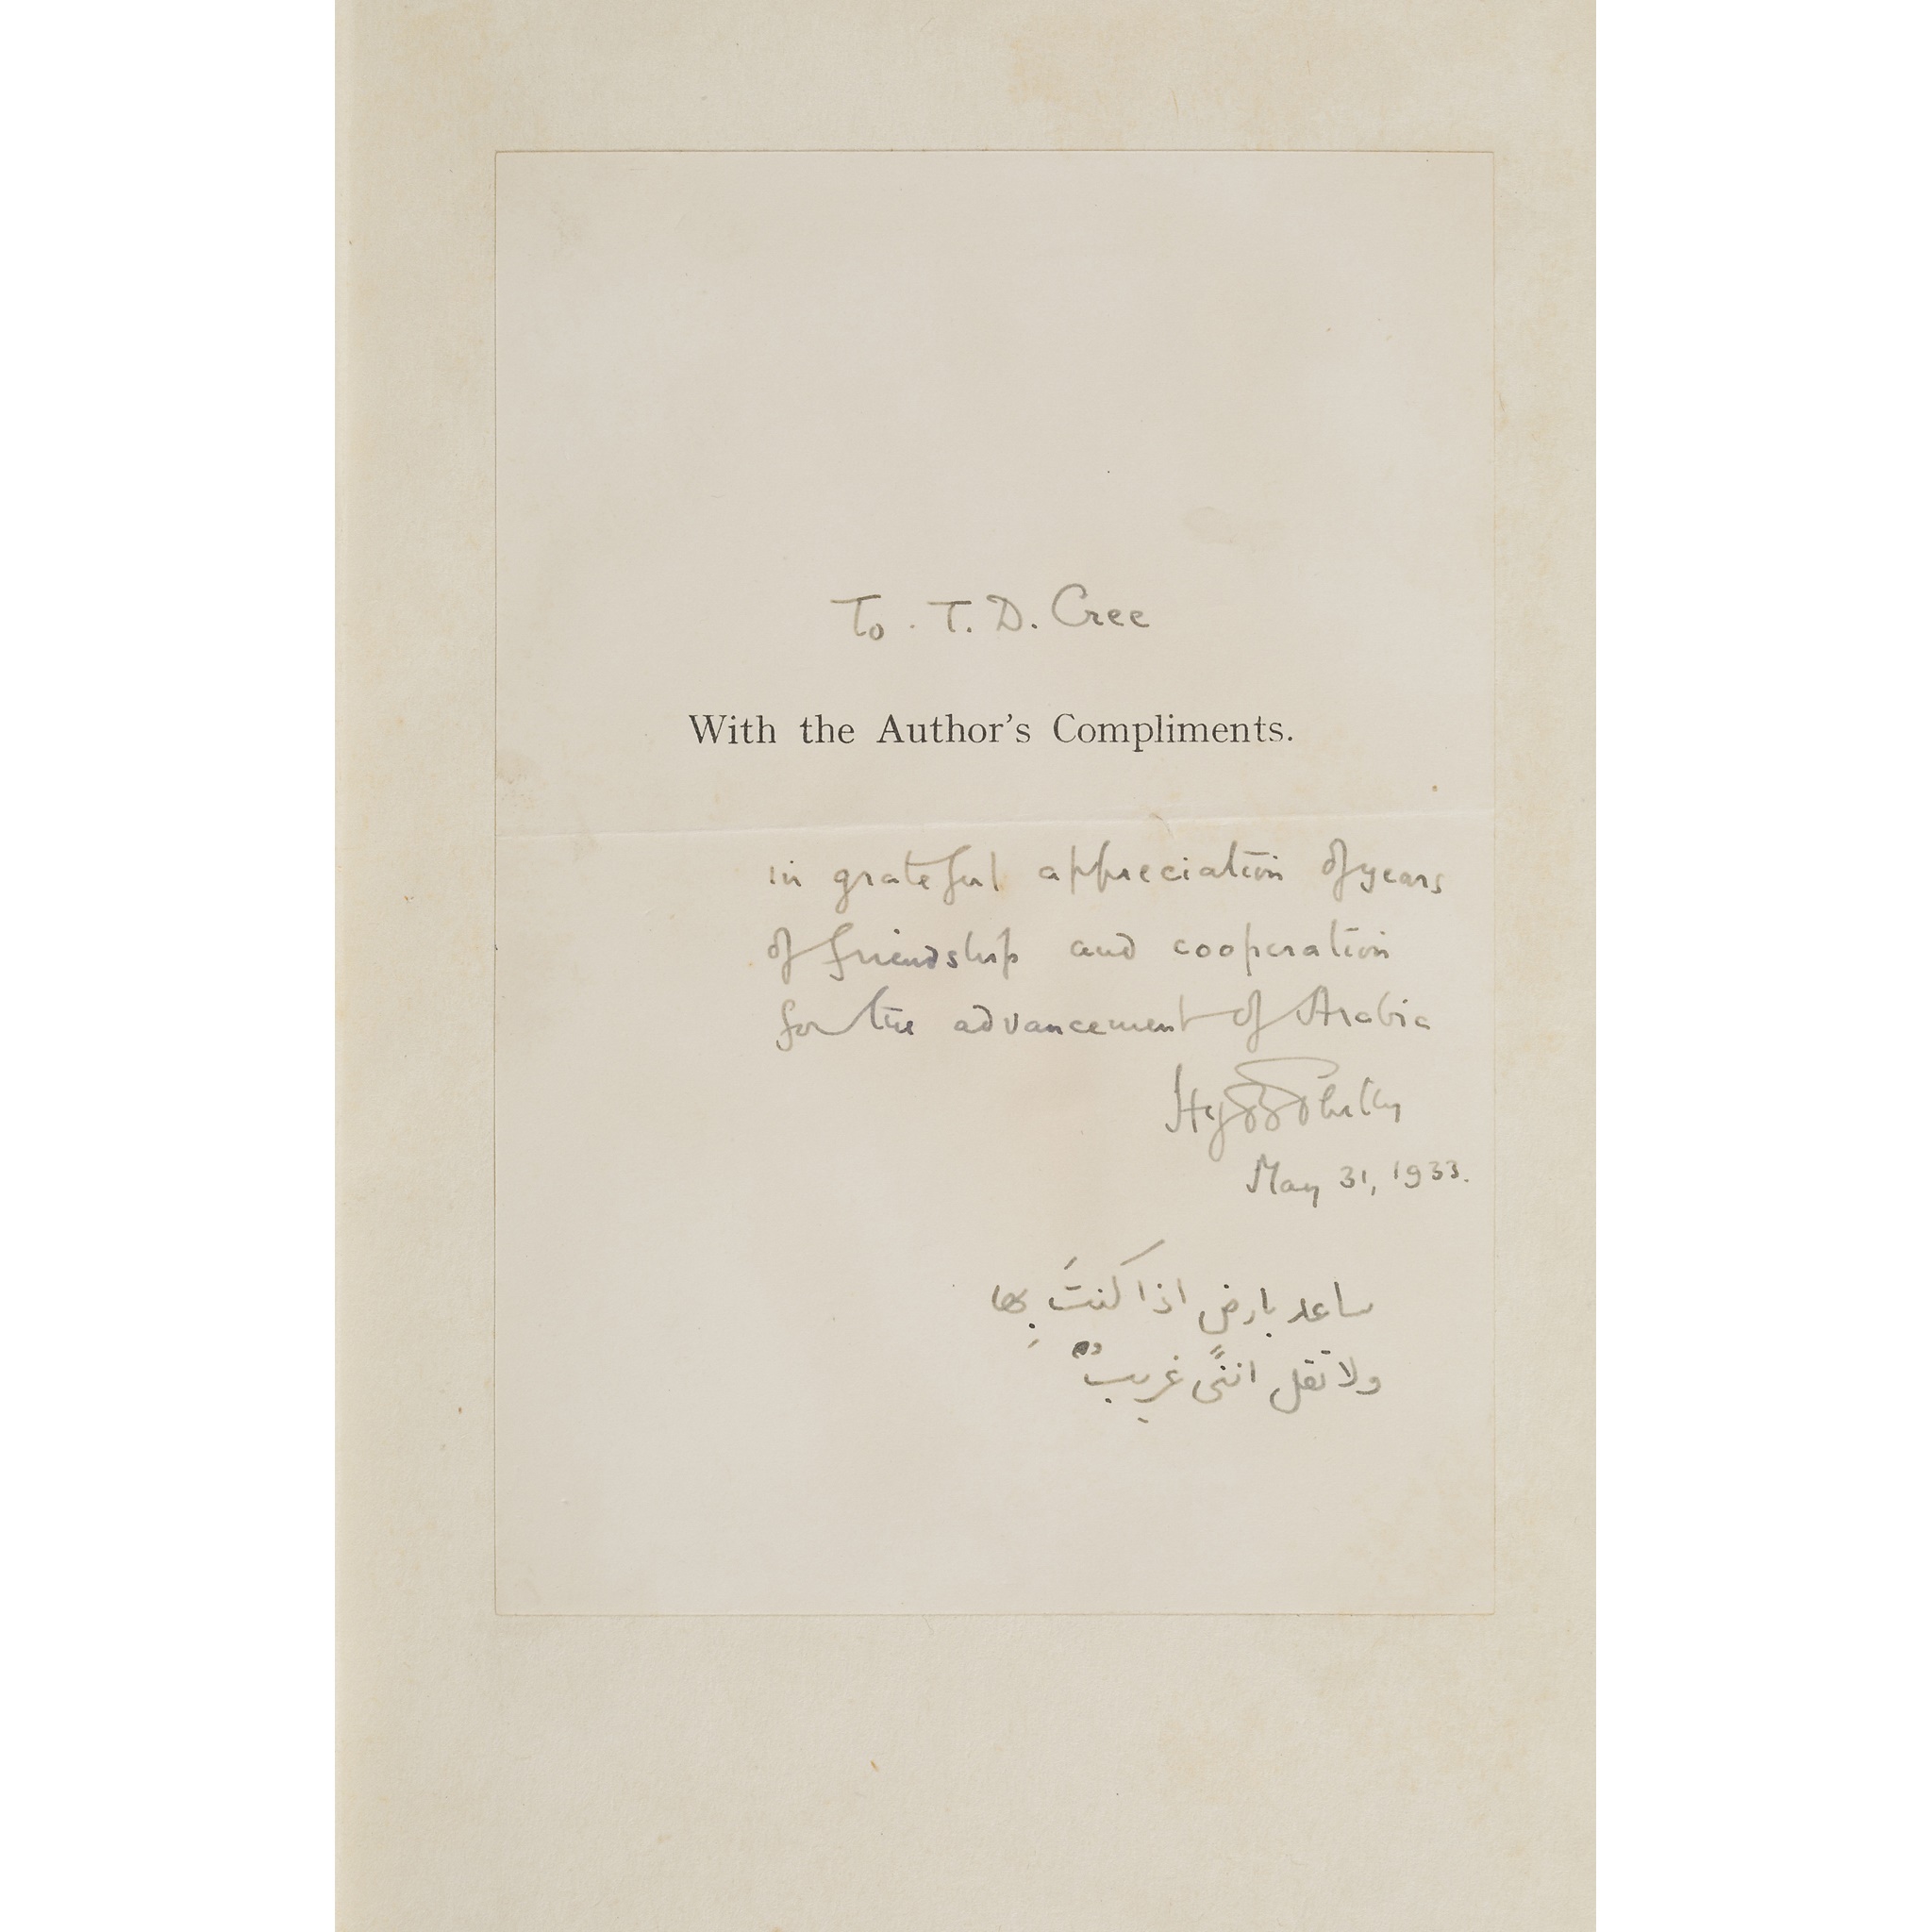 To . T. D. Cree
With the Author's Compliments.
in grateful appreciation of years
of friendship and cooperation
for the advancement of Arabia
HStJBPhilby
May 31, 1933.
ساعد بارض اذا كنتَ بِها
ولا تقل اننىً غريبٌ